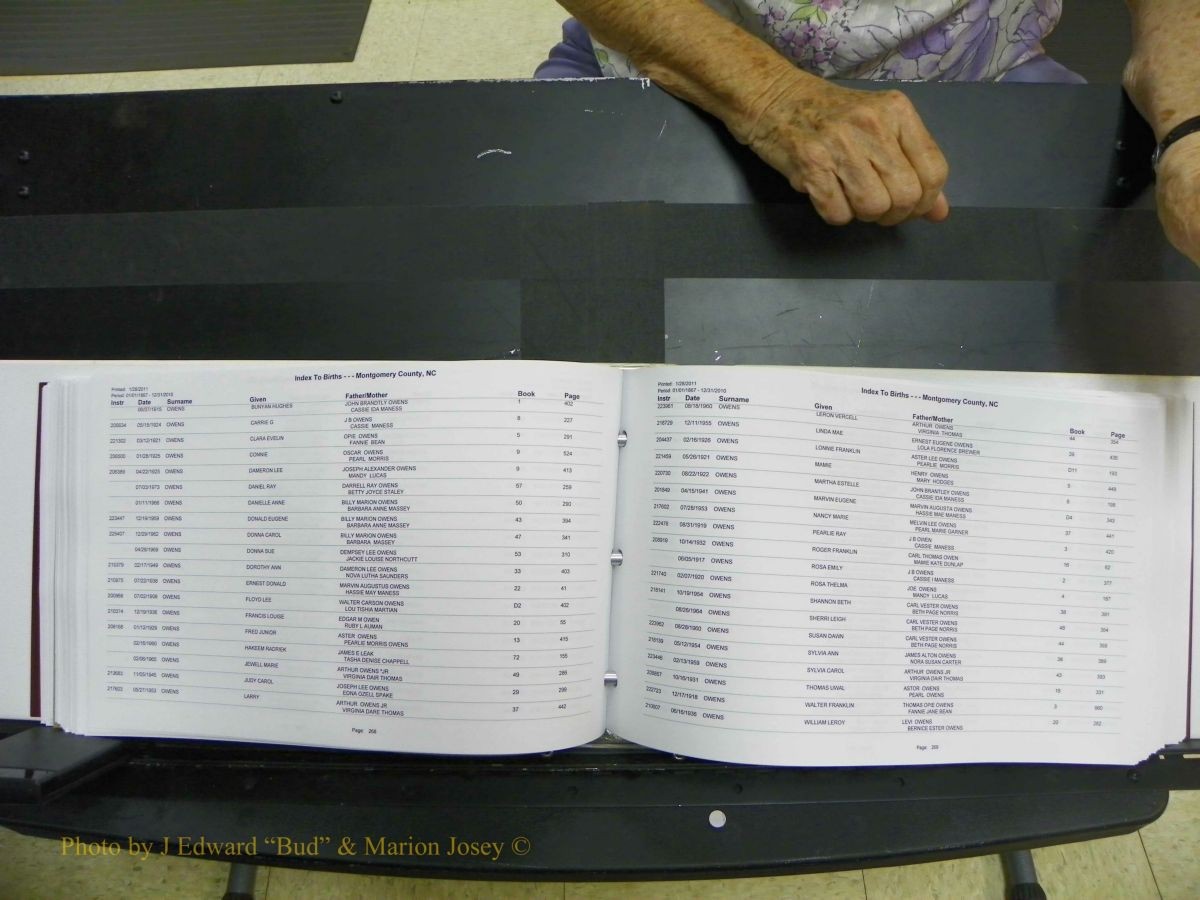 Index To Births - - - Montgomery County, NC
Printed: 1/28/2011
Period: 01/01/1867 - 12/31/2010
Instr Date Surname Given Father/Mother Book Page
OWENS BUNYAN HUGHES JOHN BRANDTLY OWENS 1 402
CASSIE IDA MANESS
05/15/1924 OWENS CARRIE G J B OWENS 8 227
CASSIE MANESS
221302 03/12/1921 OWENS CLARA EVELIN OPIE OWENS 5 291
FANNIE BEAN
01/28/1925 OWENS CONNIE OSCAR OWENS 9 524
PEARL MORRIS
04/22/1925 OWENS DAMERON LEE JOSEPH ALEXANDER OWENS 9 413
MANDY LUCAS
07/03/1973 OWENS DANIEL RAY DARRELL RAY OWENS 57 259
BETTY JOYCE STALEY
01/11/1966 OWENS DANIELLE ANNE BILLY MARION OWENS 50 290
BARBARA ANNE MASSEY
223447 12/19/1959 OWENS DONALD EUGENE BILLY MARION OWENS 43 394
BARBARA ANNE MASSEY
OWENS DONNA CAROL BILLY MARION OWENS 47 341
BARBARA MASSEY
04/26/1969 OWENS DONNA SUE DEMPSEY LEE OWENS 53 310
JACKIE LOUISE NORTHCUTT
02/17/1949 OWENS DOROTHY ANN DAMERON LEE OWENS 33 403
NOVA LUTHA SAUNDERS
OWENS ERNEST DONALD MARVIN AUGUSTUS OWENS 22 41
HASSIE MAY MANESS
OWENS FLOYD LEE WALTER CARSON OWENS D2 402
LOU TISHIA MARTIAN
OWENS FRANCIS LOUISE EDGAR M OWEN 20 55
RUBY L AUMAN
01/12/1929 OWENS FRED JUNIOR ASTER OWENS 13 415
PEARLIE MORRIS OWENS
OWENS HAKEEM RADRIEK JAMES E LEAK 72 155
TASHA DENISE CHAPPELL
OWENS JEWELL MARIE ARTHUR OWENS JR 49 286
VIRGINIA DAIR THOMAS
11/05/1945 OWENS JUDY CAROL JOSEPH LEE OWENS 29 299
EDNA OZELL SPAKE
OWENS LARRY ARTHUR OWENS JR 37 442
VIRGINIA DARE THOMAS
Page: 268
Index To Births - - - Montgomery County, NC
Printed: 1/28/2011
Period: 01/01/1867 - 12/31/2010
Instr Date Surname Given Father/Mother Book Page
223961 08/18/1960 OWENS LERON VERGELL ARTHUR OWENS 44 354
VIRGINIA THOMAS
218729 12/11/1955 OWENS LINDA MAE ERNEST EUGENE OWENS 39 435
LOLA FLORENCE BREWER
204437 02/16/1926 OWENS LONNIE FRANKLIN ASTER LEE OWENS D11 193
PEARLIE MORRIS
221459 05/26/1921 OWENS MAMIE HENRY OWENS 5 449
MARY HODGES
220730 08/22/1922 OWENS MARTHA ESTELLE JOHN BRANTLEY OWENS 6 198
CASSIE IDA MANESS
201849 04/15/1941 OWENS MARVIN EUGENE MARVIN AUGUSTA OWENS D4 343
HASSIE MAE MANESS
217602 07/28/1953 OWENS NANCY MARIE MELVIN LEE OWENS 37 441
PEARL MARIE GARNER
222476 08/31/1919 OWENS PEARLIE RAY J B OWEN 3 420
CASSIE MANESS
208919 10/14/1932 OWENS ROGER FRANKLIN CARL THOMAS OWEN 16 62
MAMIE KATE DUNLAP
06/05/1917 OWENS ROSA EMILY J B OWENS 2 377
CASSIE I MANESS
221740 02/07/1920 OWENS ROSA THELMA JOE OWENS 4 187
MANDY LUCAS
218141 10/19/1954 OWENS SHANNON BETH CARL VESTER OWENS 38 391
BETH PAGE NORRIS
08/26/1964 OWENS SHERRI LEIGH CARL VESTER OWENS 48 354
BETH PAGE NORRIS
06/28/1960 OWENS SUSAN DAWN CARL VESTER OWENS 44
BETH PAGE NORRIS
218139 05/12/1954 OWENS SYLVIA ANN JAMES ALTON OWENS 38 389
NORA SUSAN CARTER
223446 02/13/1959 OWENS SYLVIA CAROL ARTHUR OWENS JR 43 393
VIRGINIA DAIR THOMAS
10/16/1931 OWENS THOMAS UWAL ASTOR OWENS 15 331
PEARL OWENS
222723 12/17/1918 OWENS WALTER FRANKLIN THOMAS OPIE OWENS 3
FANNIE JANE BEAN
210607 06/16/1936 OWENS WILLIAM LEROY LEVI OWENS 20 282
BERNICE ESTER OWENS
Page: 269
Photo by J Edward “Bud” & Marion Josey ©